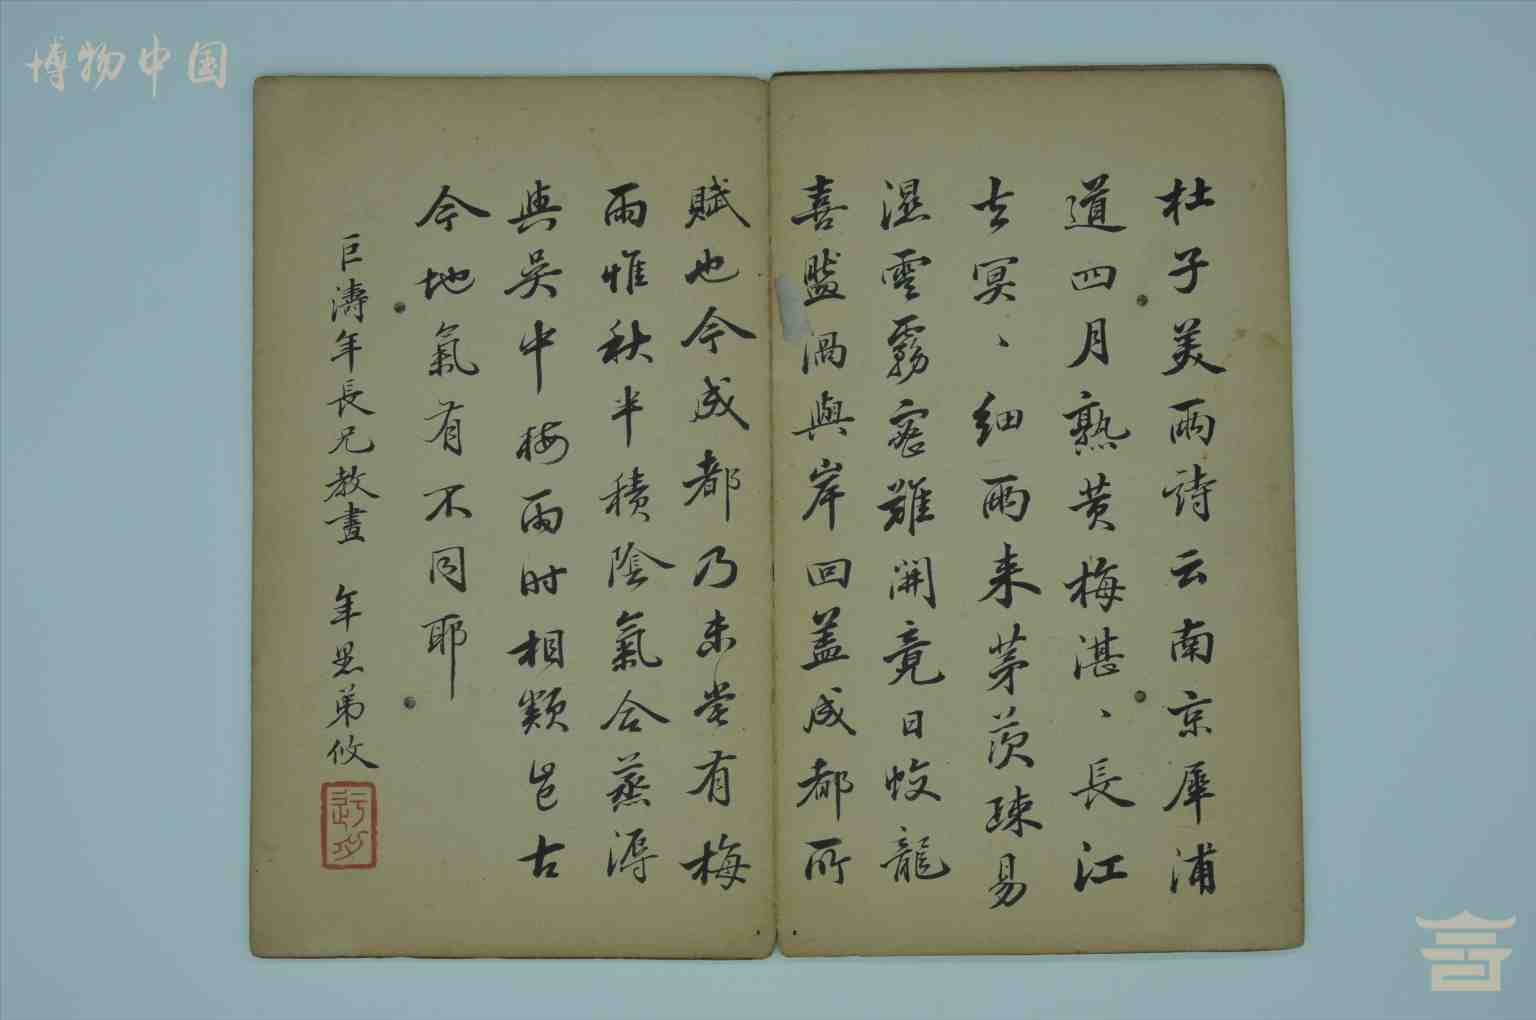 博物中国
杜子美雨詩云南京犀浦
道四月熟黄梅湛、長江
去冥、細雨来茅茨踈易
濕雲霧密難開竟日蛟龍
喜盤渦與岸回蓋成都所
賦也今成都乃未嘗有梅
雨惟秋半積陰氣令蒸溽
與吴中梅雨时相類豈古
今地氣有不同耶
巨濤年長兄教畫 年愚弟攸